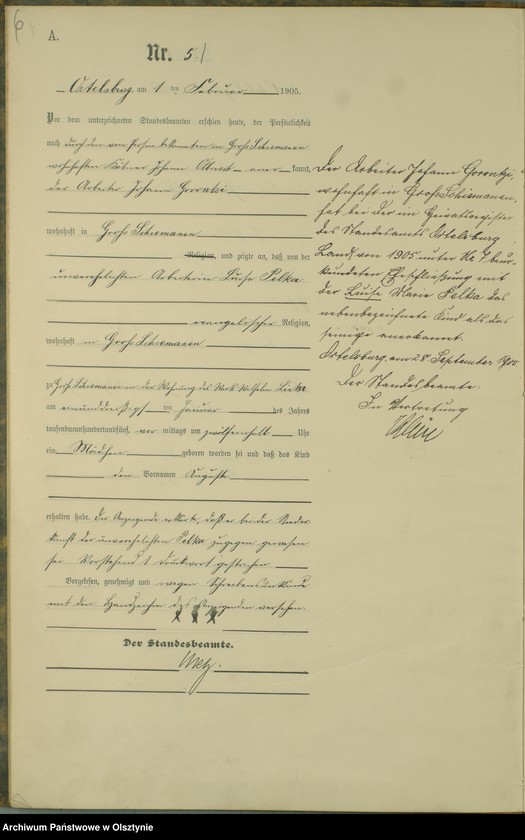 6
A.
Nr. 5.
Ortelsburg, am 1 ten Februar 1905.
Vor dem unterzeichneten Standesbeamten erschien heute, der Persönlichkeit
nach durch den von Person bekannten in Groß Schiemanen
wohnhaften Johann kannt,
der Arbeiter Johann
wohnhaft in Groß Schiemanen
Religion, und zeigte an, daß von der
unverehelichten Arbeiterin Luise Pelka
evangelischer Religion,
wohnhaft in Groß Schiemanen
zu Groß Schiemanen in der Wohnung des Wilhelm
am ten Januar des Jahres
tausendneunhundertundfünf, vor mittags um zwölfeinhalb Uhr
ein Mädchen geboren worden sei und daß das Kind
den Vornamen Auguste
erhalten habe. Der Anzeigende erklärt, daß er bei der Nieder-
kunft der unverehelichten Pelka zugegen gewesen
sei Vorstehend 1 Druckwort gestrichen
Vorgelesen, genehmigt und wegen
mit den Handzeichen des Anzeigenden versehen.
x x x
Der Standesbeamte.
Der Arbeiter Johann Gorontzi,
wohnhaft in Groß Schiemanen,
hat bei der im Heiratsregister
des Standesamts Ortelsburg
Land, von 1905 unter Nr. beur-
kundeten Eheschließung mit
der Luise Marie Pelka das
nebenbezeichnete Kind als das
seinige anerkannt.
Ortelsburg, am 28. September 1905.
Der Standesbeamte.
In Vertretung
Archiwum Państwowe w Olsztynie